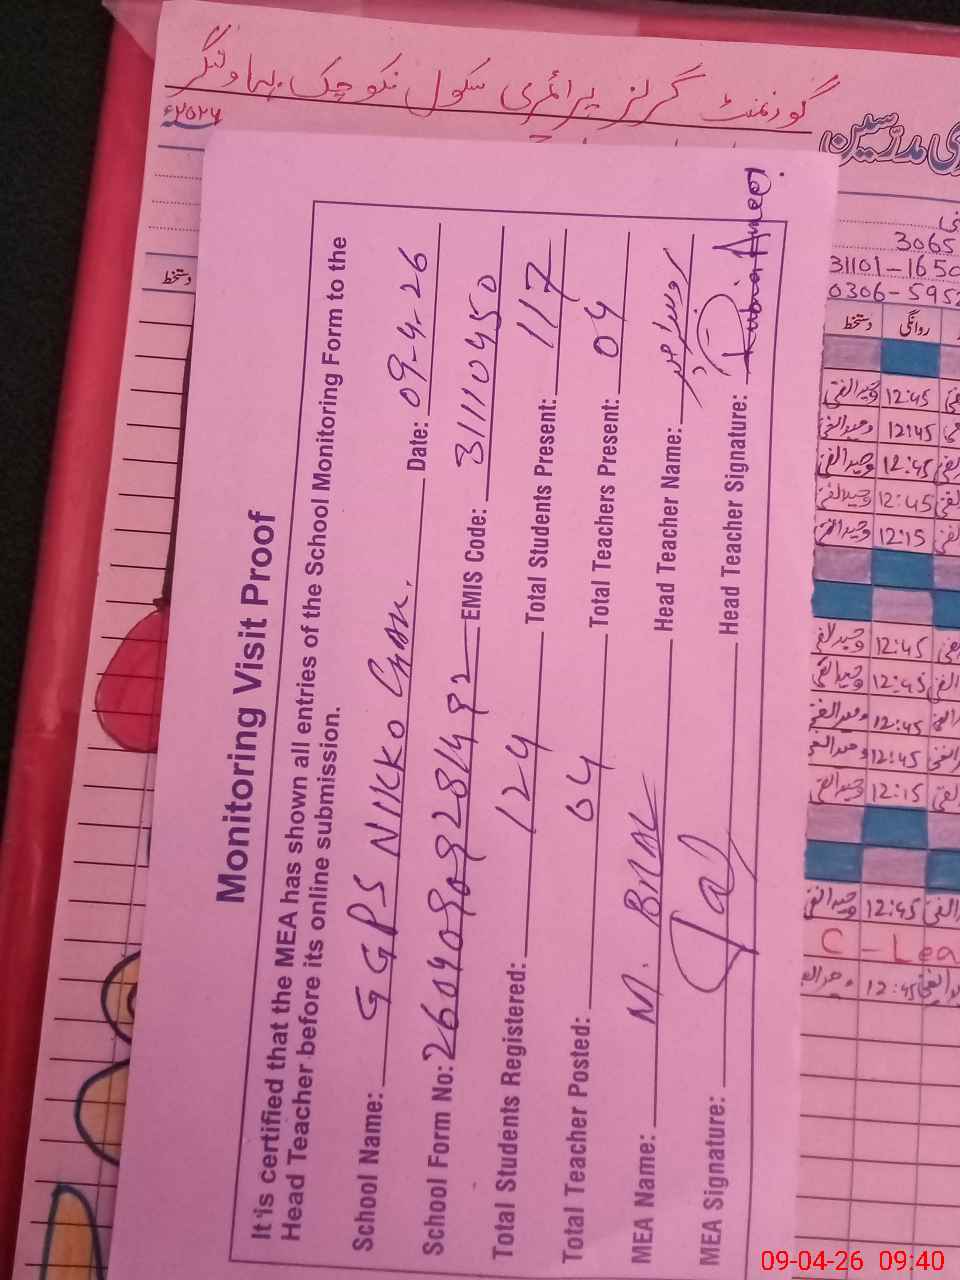 گورنمنٹ گرلز پرائمری سکول نکوچک بہاولنگر
۲۰۲۶ء
مدرسین
3065
31101-1650
0306-5952
دستخط
دستخط روانگی
وحیدالغنی 12:45
وحیدالغنی 12:45
وحیدالغنی 12:45
وحیدالغنی 12:45
وحیدالغنی 12:15
وحیدالغنی 12:45
وحیدالغنی 12:45
وحیدالغنی 12:45
وحیدالغنی 12:45
وحیدالغنی 12:15
وحیدالغنی 12:45
C - Lea
12:45
Monitoring Visit Proof
It is certified that the MEA has shown all entries of the School Monitoring Form to the
Head Teacher before its online submission.
School Name: GGPS NIKKO CHAK. Date: 09-4-26
School Form No: EMIS Code: 31110450
Total Students Registered: 124 Total Students Present: 117
Total Teacher Posted: 04 Total Teachers Present: 04
MEA Name: M. BILAL Head Teacher Name:
MEA Signature: Head Teacher Signature: Rubina Ameer
09-04-26 09:40